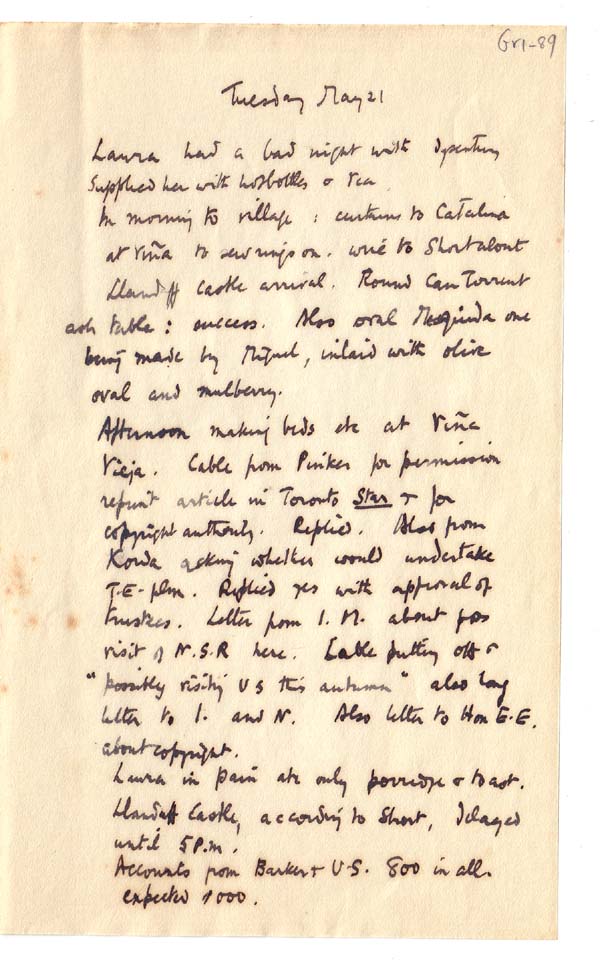 Gr1-89
Tuesday May 21
Laura had a bad night with dysentery
Supplied her with hotbottles & tea.
In morning to village : curtains to Catalina
at Viña to sew rings on. wire to Short about
Llandaff Castle arrival. Round Can Torrent
ash table : success. Also oval one
being made by Miguel, inlaid with olive
oval and mulberry.
Afternoon making beds etc at Viña
Vieja. Cable from Pinker for permission
reprint article in Toronto Star & for
copyright authority. Replied. Also from
Korda asking whether would undertake
T.E- film. Replied yes with approval of
trustees. Letter from I. M. about poss
visit of N.S.R here. Cable putting off &
"possibly visiting US this autumn" also long
letter to I. and N. Also letter to Hon E.E.
about copyright.
Laura in pain ate only porridge & toast.
Llandaff Castle, according to Short, delayed
until 5 P.m.
Accounts from Barker & U.S. 800 in all.
expected 1000.